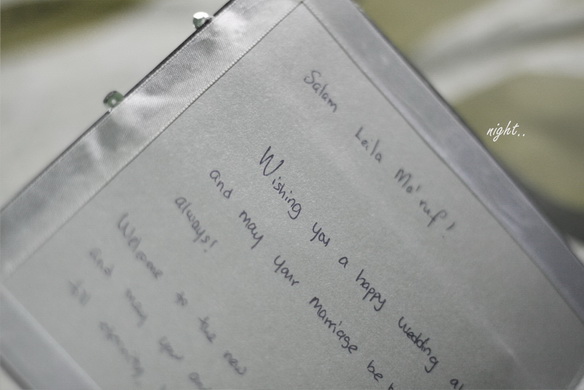 Salam Laila Ma'ruf!
Wishing you a happy wedding
and may your marriage be
always!
Welcome to the new
and may you
till
night..